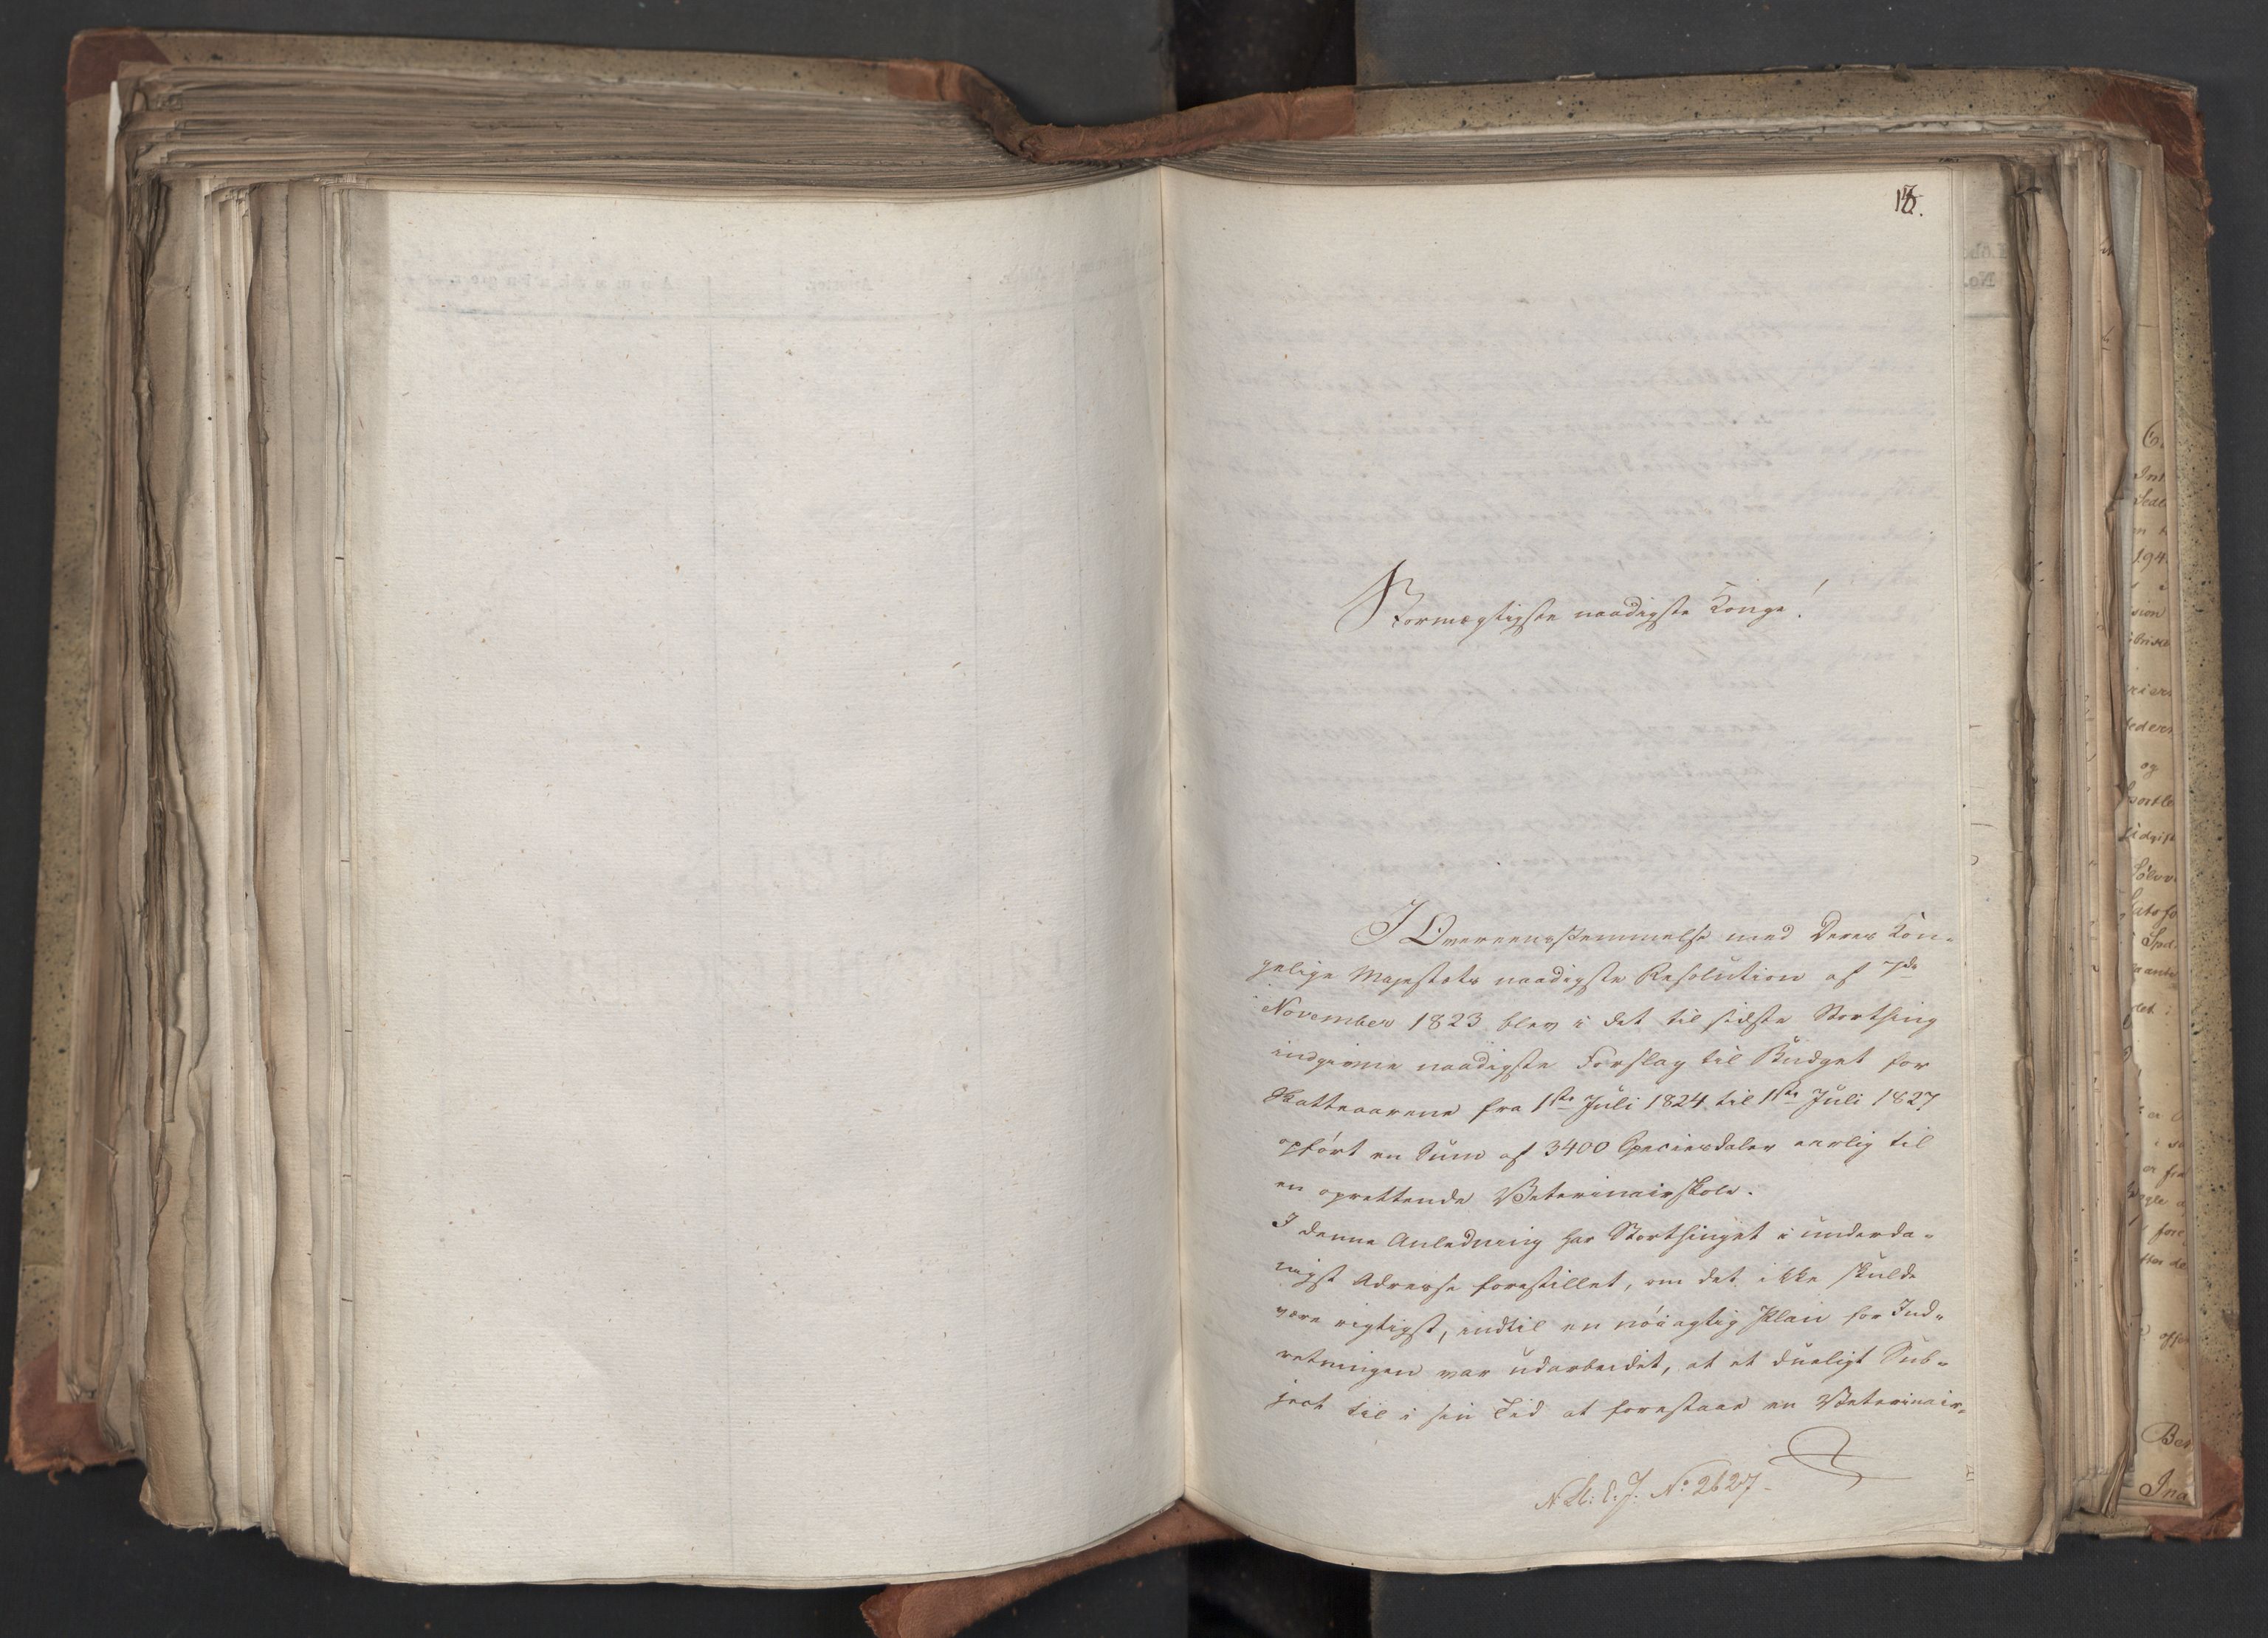 Stormægtigste naadigste Konge!
I Overeensstemmelse med Deres Kon-
gelige Majestæts naadigste Resolution af 7de
November 1823 blev i det til sidste Storthing
indgivne naadigste Forslag til Budget for
Skatteaarene fra 1ste Juli 1824 til 1ste Juli 1827
opført en Sum af 3400 Speciesdaler aarlig til
en oprettende Veterinairskole.
I denne Anledning har Storthinget i underda-
nigst Adresse forestillet, om det ikke skulde
være rigtigst, indtil en nöiagtig Plan for Ind-
retningen var udarbeidet, at et dueligt Sub-
ject til i sin Tid at forestaae en Veterinair-
No 2627